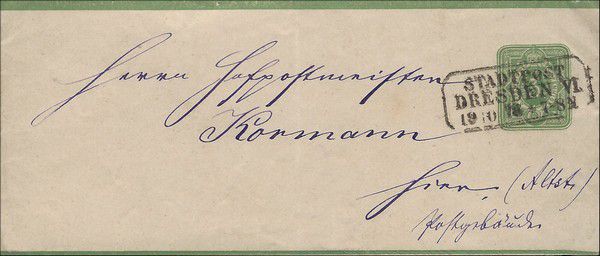 Herrn Hofpostmeister
Kormann
Hier, (Altst.)
Postgebäude
STADTPOST
DRESDEN VI.
19 10
7-8N